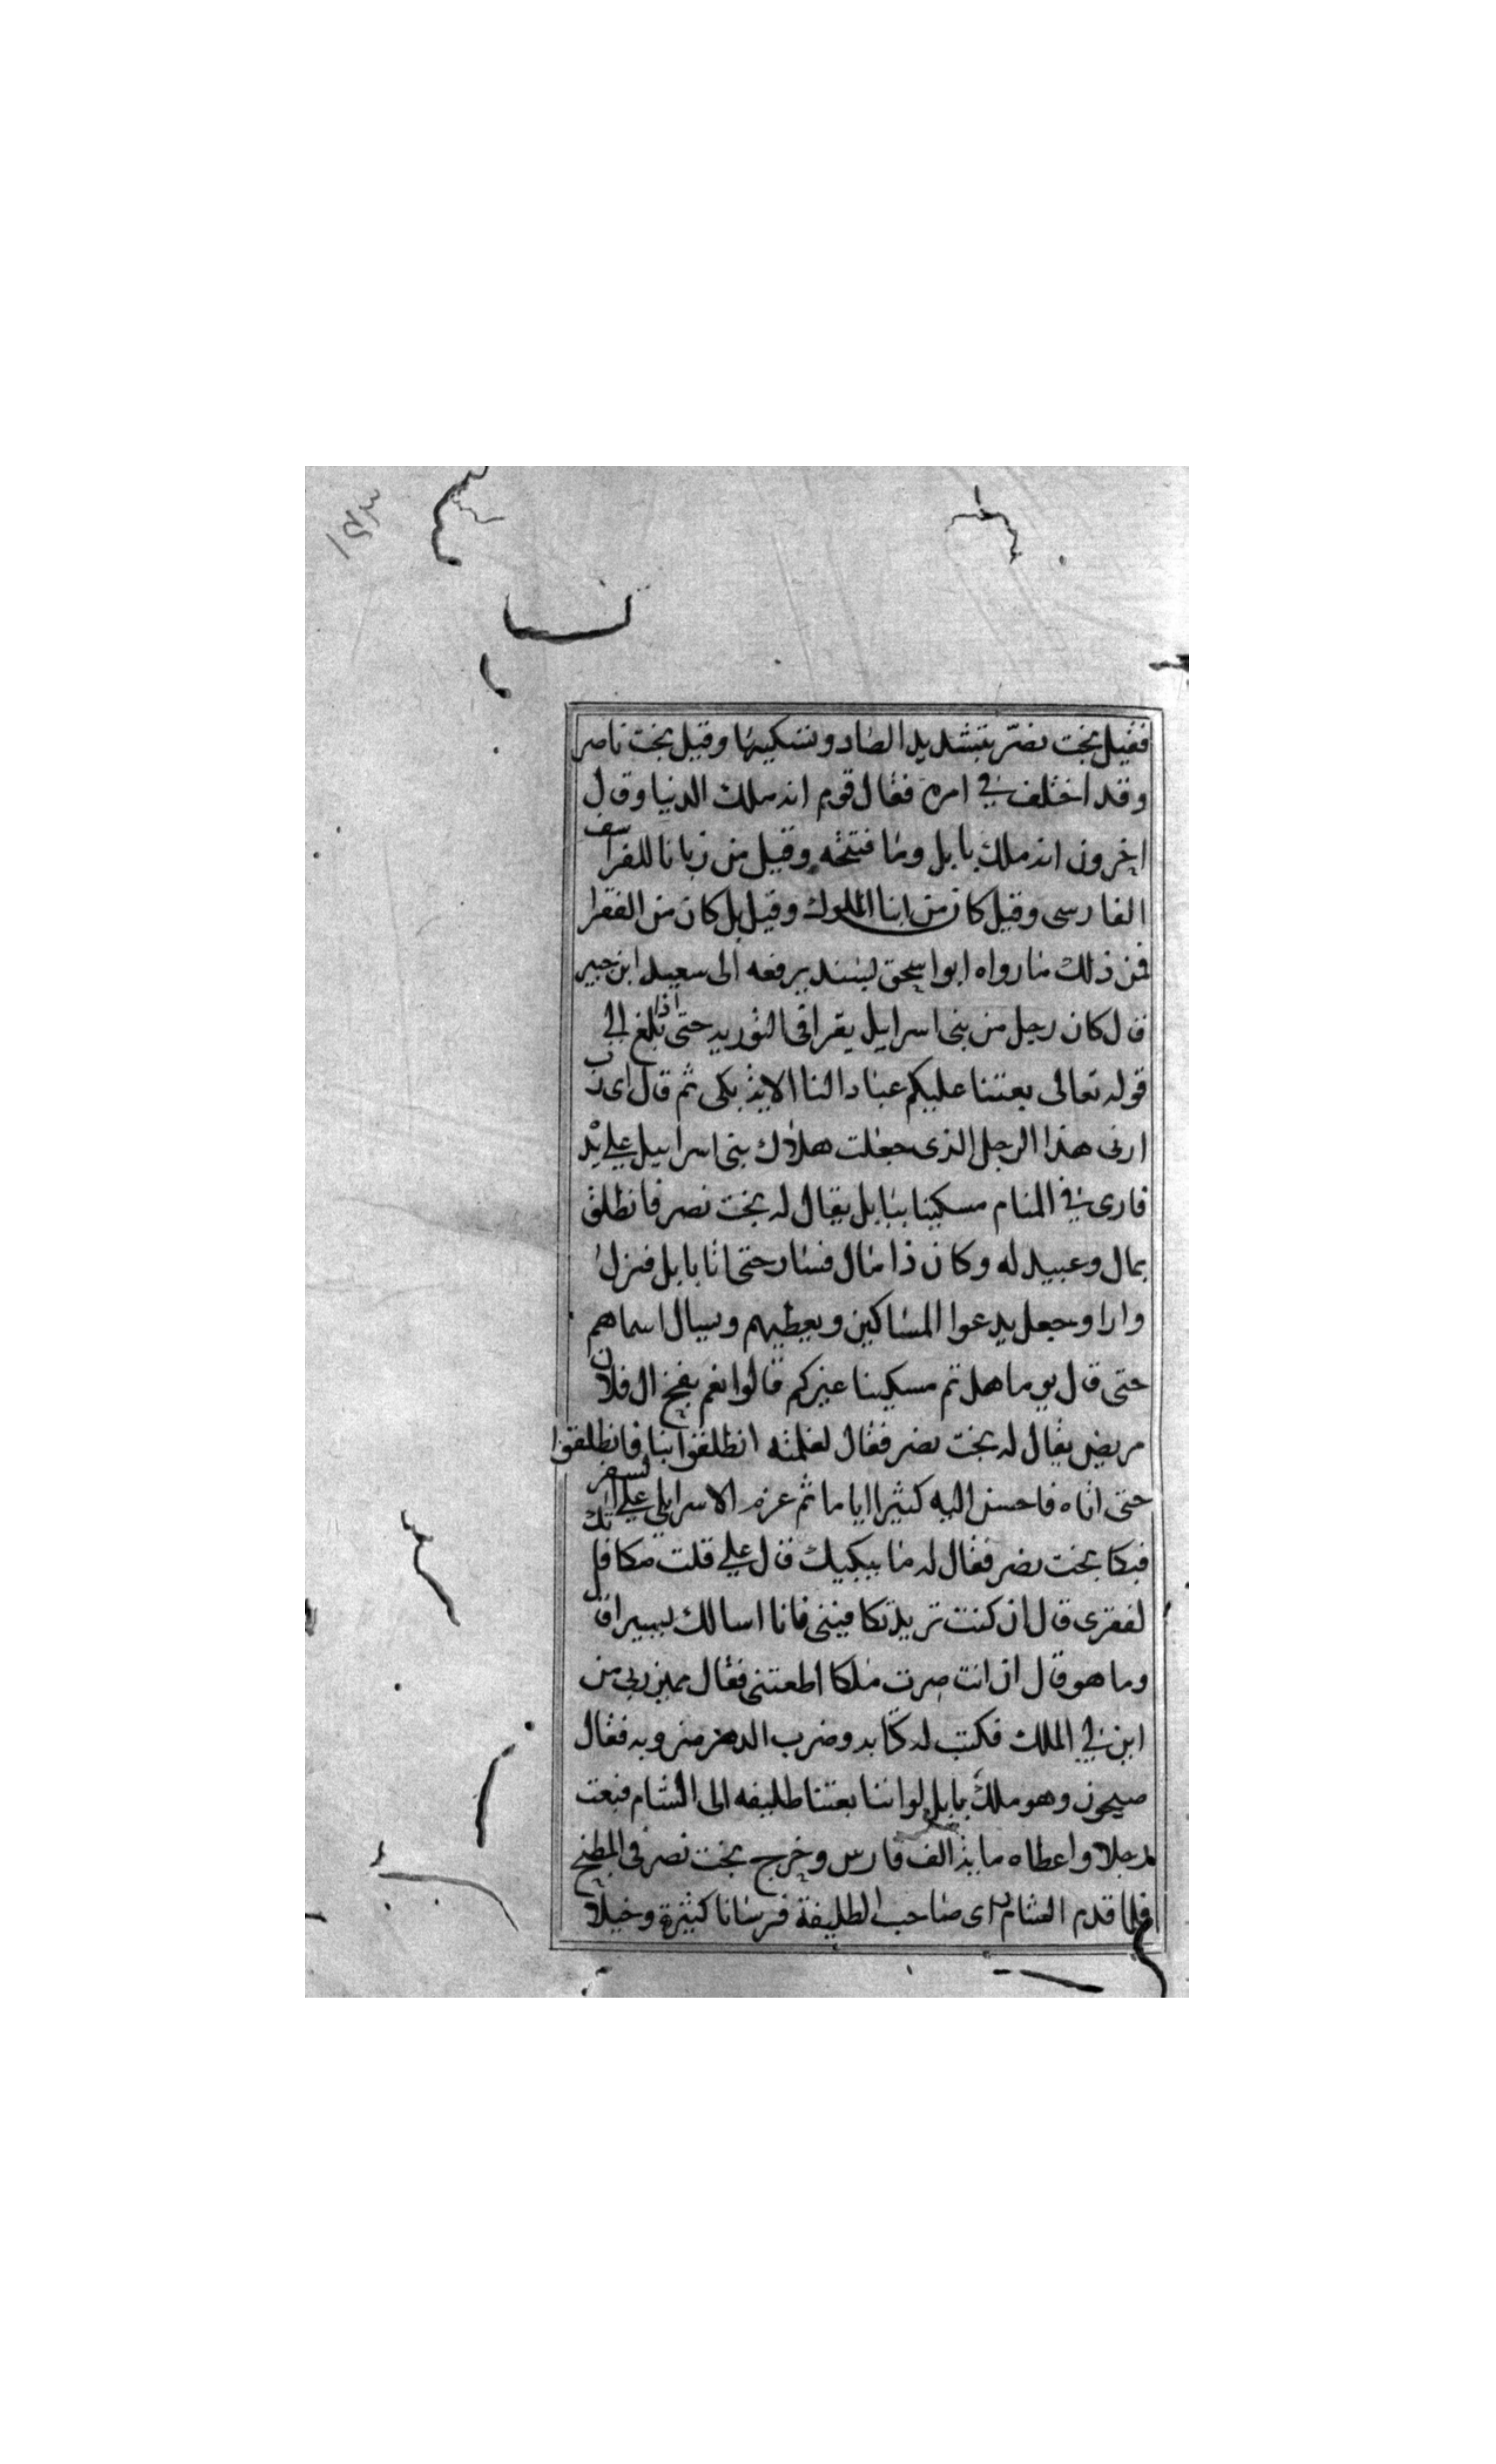 ١٤٣
فقيل بخت نصّر بتشديد الصاد وتسكينها وقيل بخت ناصر
وقد اختلف في امره فقال قوم انه ملك الدنيا وقال
اخرون انه ملك بابل وما فتحه وقيل من زبانا للفراسف
الفارسى وقيل كان من ابنا الملوك وقيل بل كان من الفقرا
فمن ذلك ما رواه ابو اسحق بسند يرفعه الى سعيد ابن جبير
قال كان رجل من بنى اسرايل يقرا فى التوريه حتى اذا بلغ الى
قوله تعالى بعثنا عليكم عبادا لنا الايه بكى ثم قال اى رب
ارنى هذا الرجل الذى جعلت هلاك بنى اسراييل على يد
فارى في المنام مسكينا ببابل يقال له بخت نصر فانطلق
بمال وعبيد له وكان ذا مال فسار حتى اتا بابل فنزل
دارا وجعل يدعوا المساكين ويعطيهم ويسال اسماهم
حتى قال يوما هل ثم مسكينا غيركم قالوا نعم بفج ال فلان
مريض يقال له بخت نصر فقال لغلمته انطلقوا بنا فانطلقوا
حتى اتاه فاحسن اليه كثيرا اياما ثم عزم الاسرايلي على السفر
فبكا بخت نصر فقال له ما يبكيك قال على قلت مكافاتك
لفقرى قال ان كنت تريد تكافينى فانا اسالك يسيرا قال
وما هو قال ان انت صرت ملكا اطعتنى فقال من
اين لي الملك فكتب له كتابه وضرب الدهر فقال
صيحون وهو ملك بابل لو اننا بعثنا طليفه الى الشام فبعث
رجلا واعطاه مايه الف فارس وخرج بخت نصر فى المطبخ
فلما قدم الشام راى صاحب الطليفة فرسانا كثيرة وخيلا